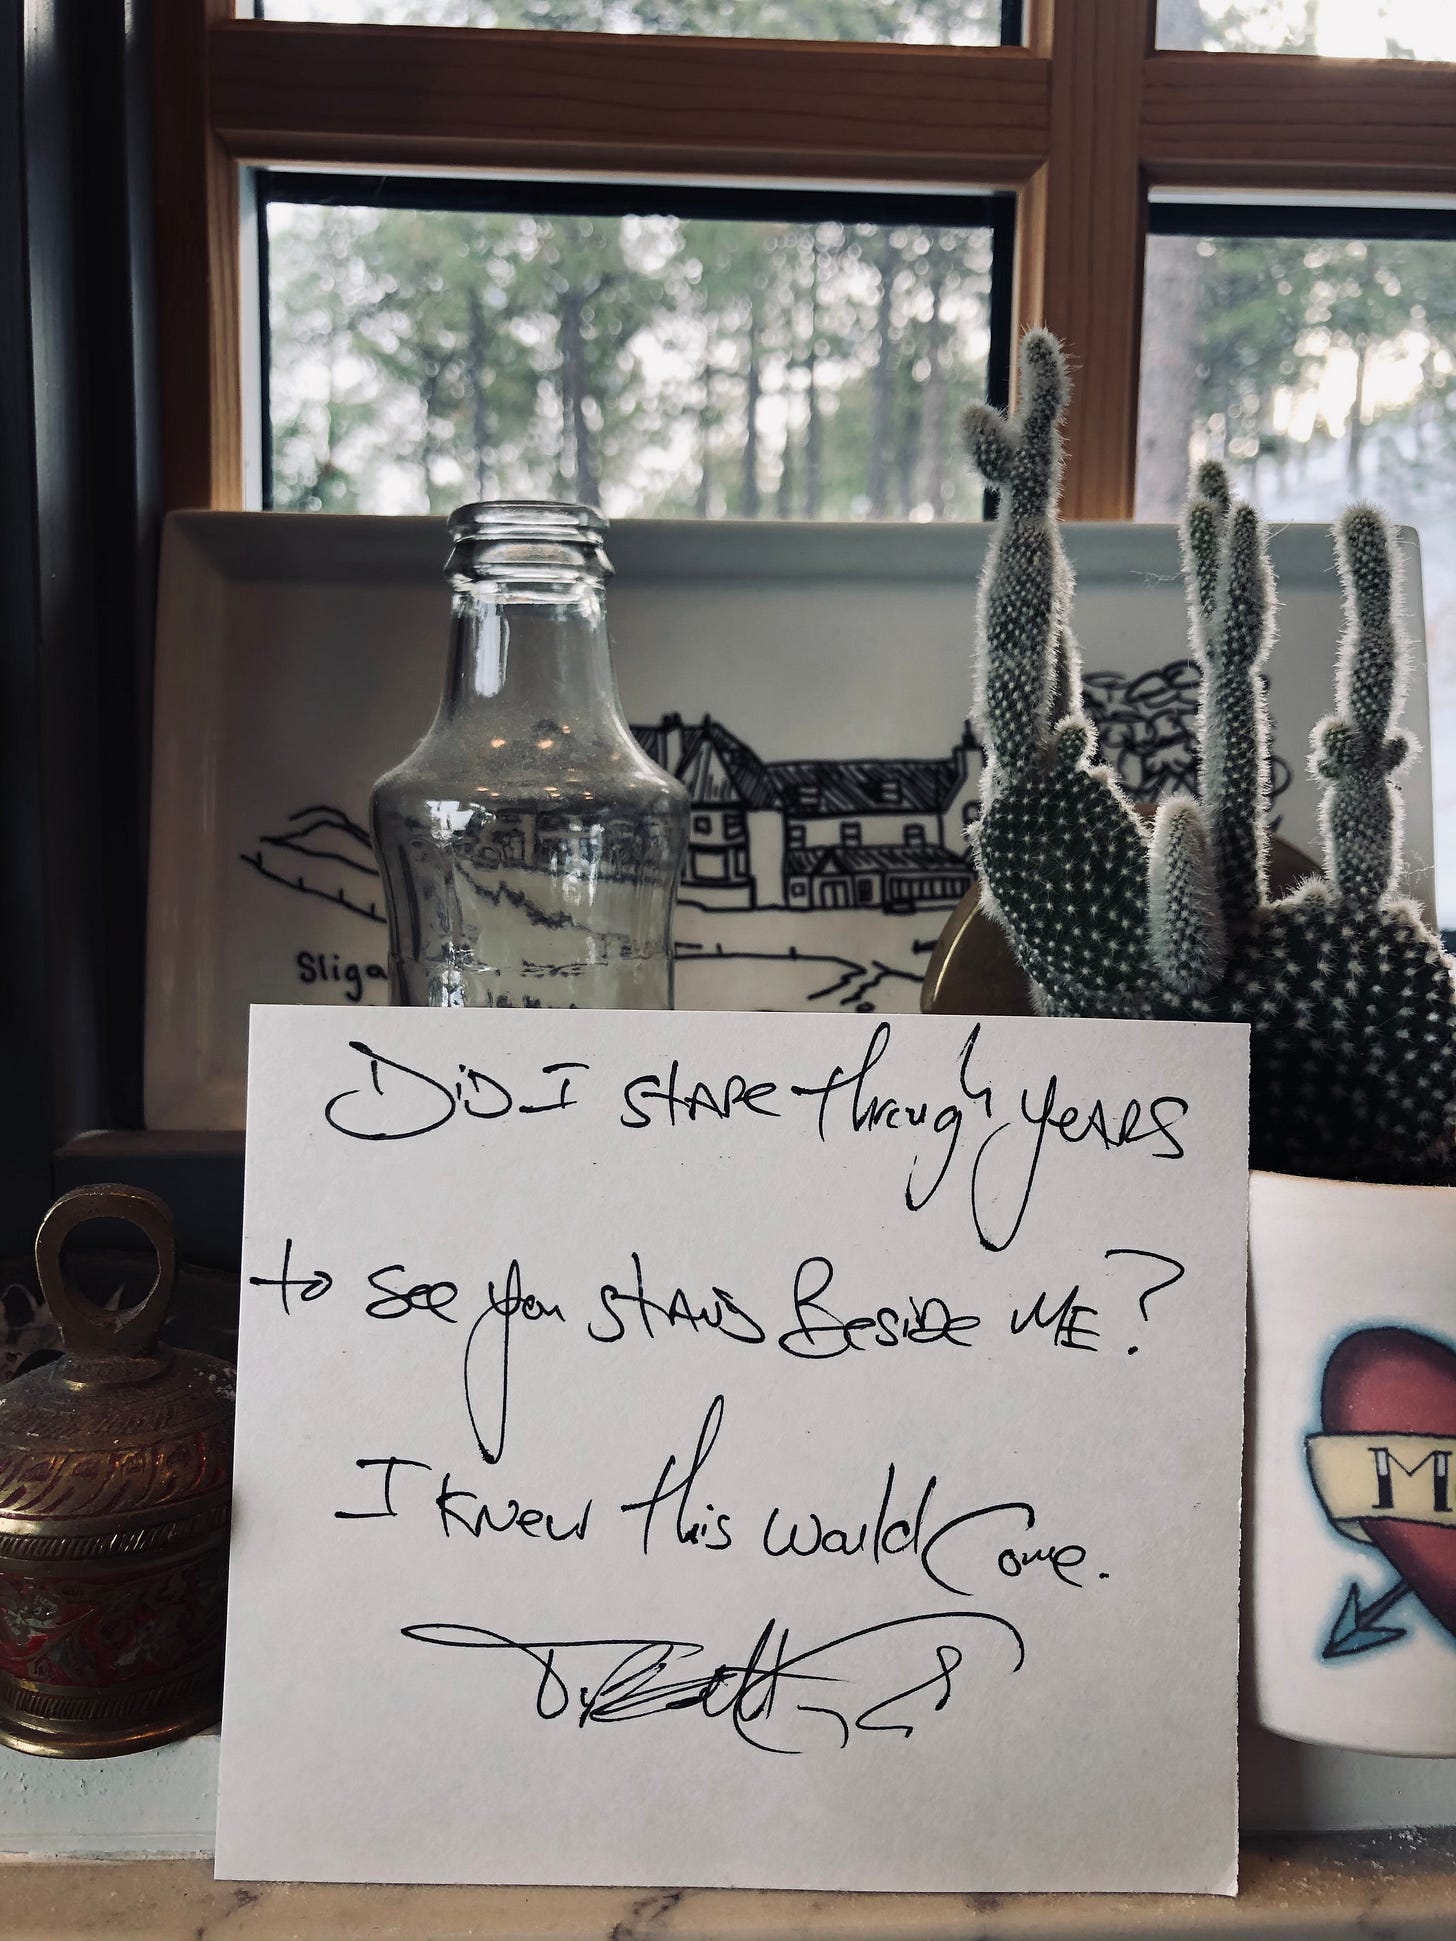 Sliga
DiD I stARe through yeARS
to see you stAND BesiDe ME?
I knew this would Come.
M